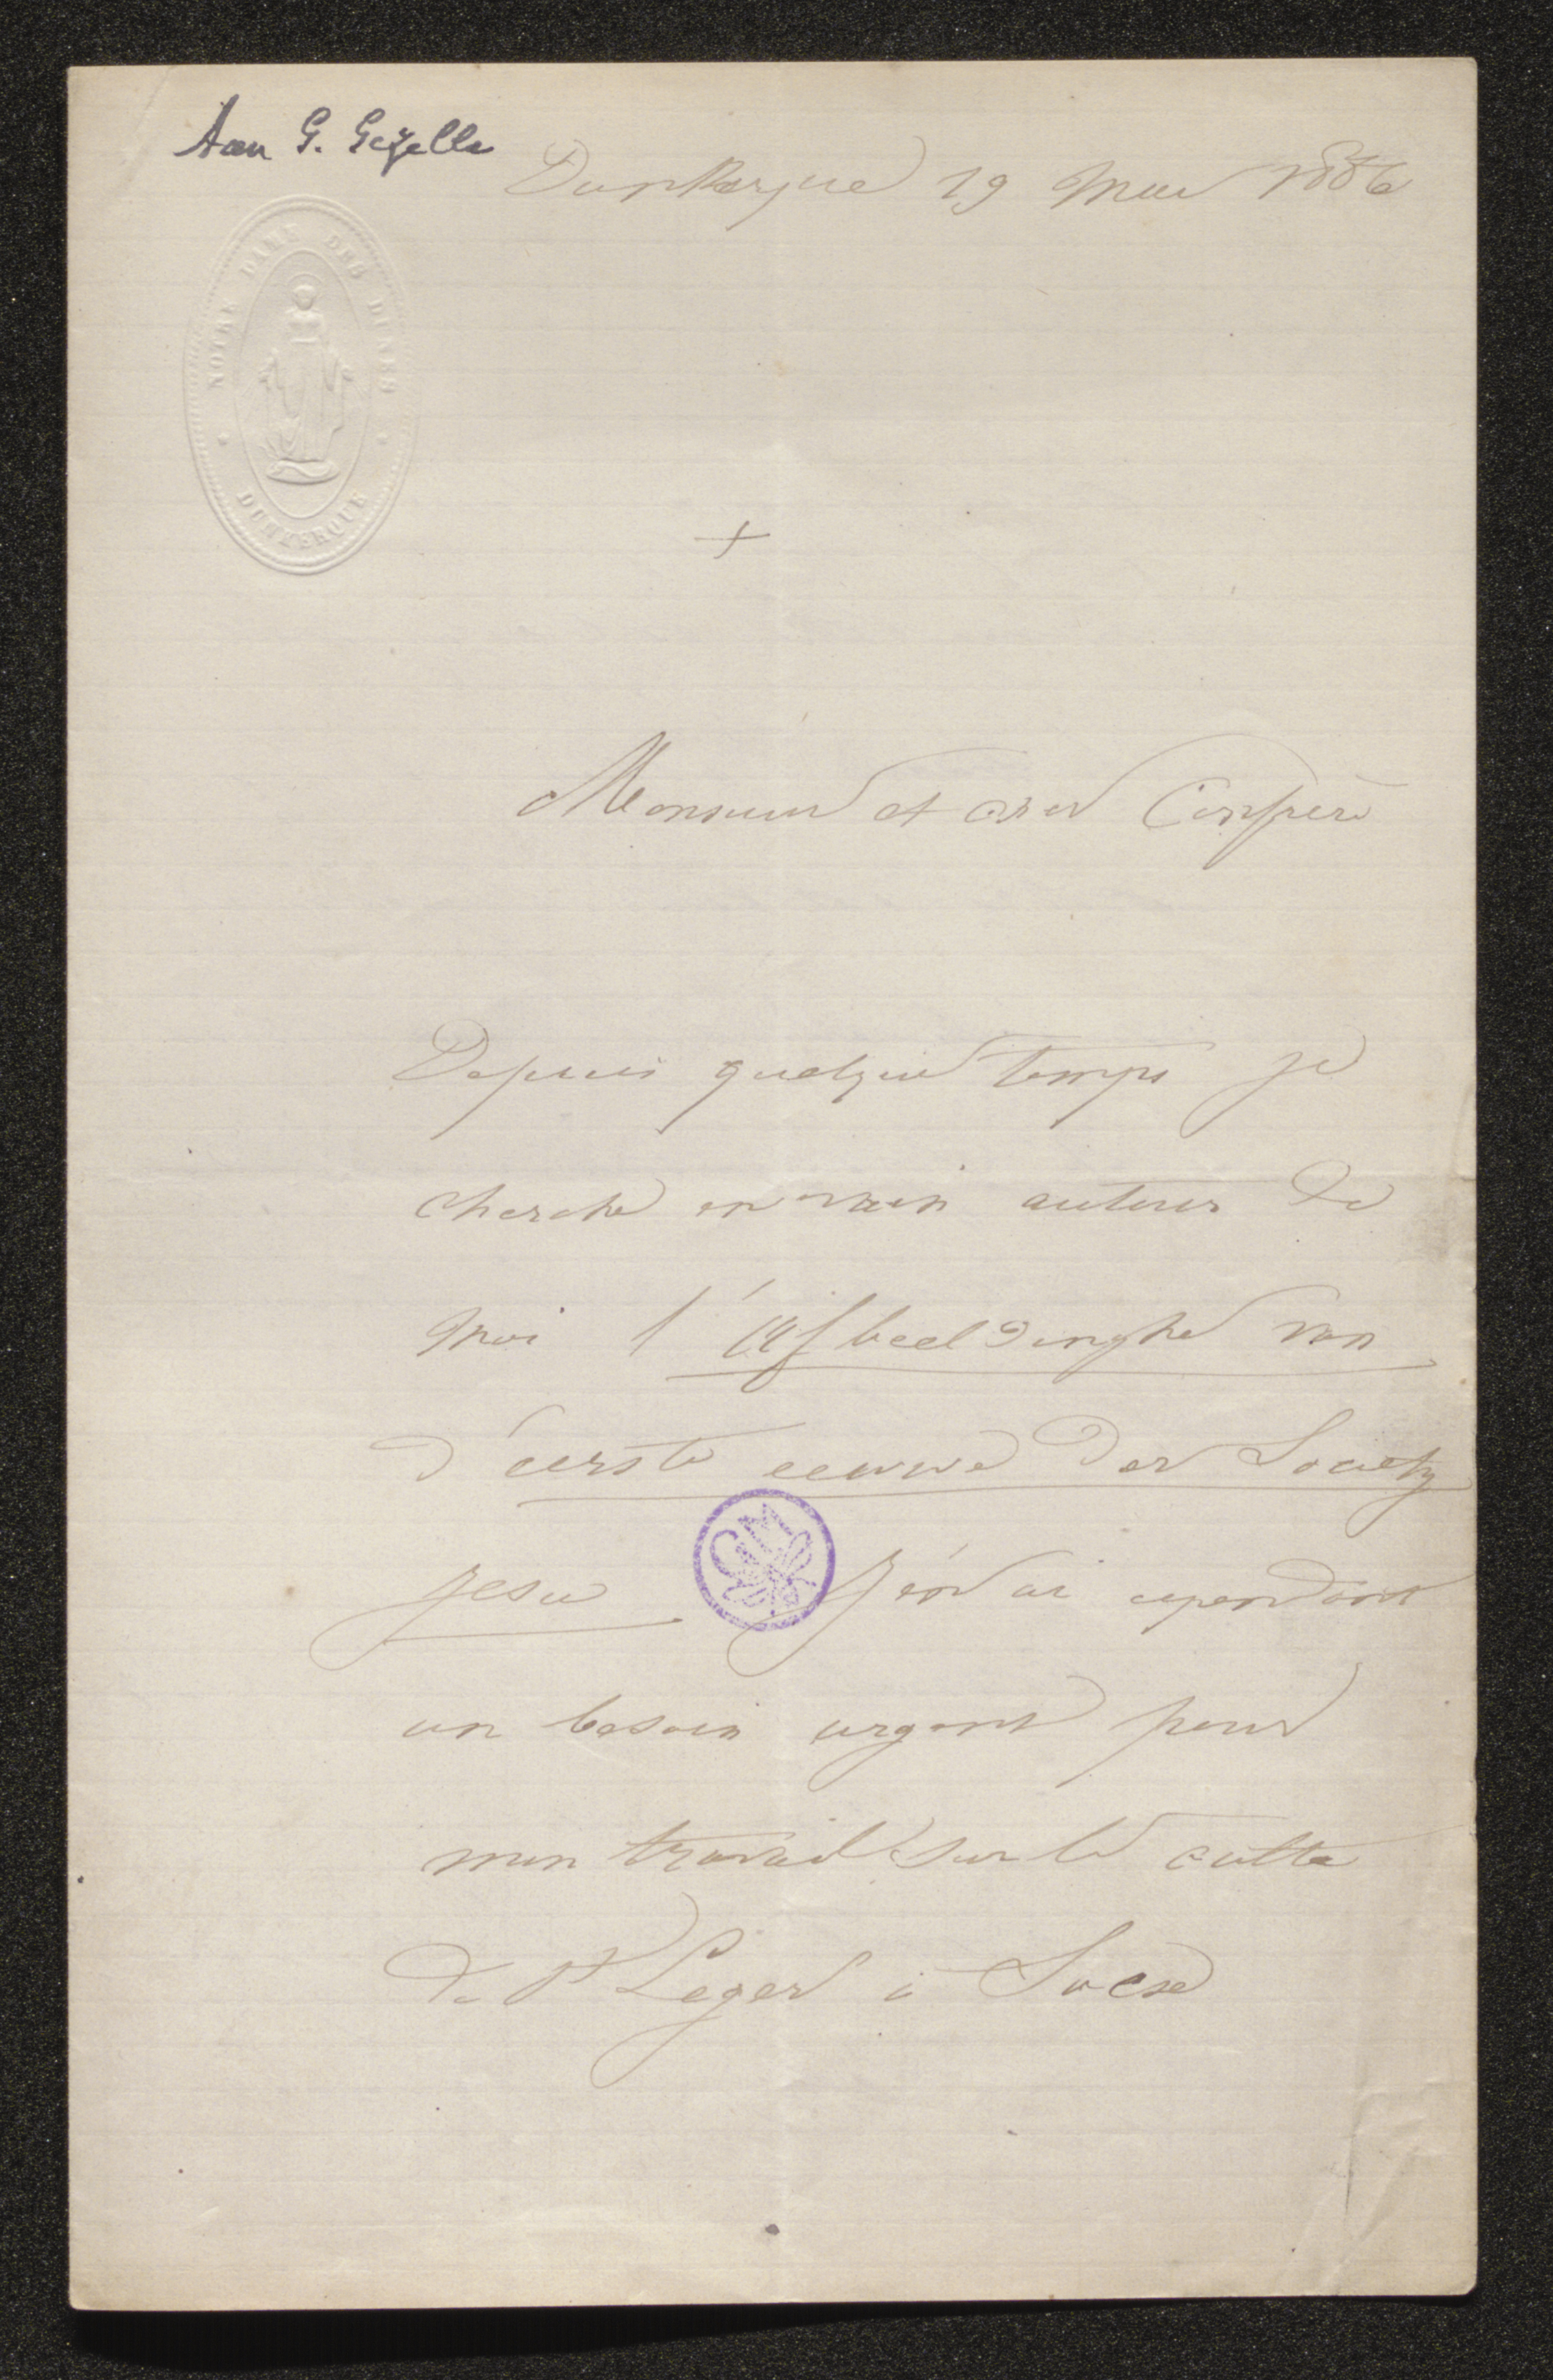 Aan G. Gezelle
Dunkerque 19 Mai 1886
NOTRE DAME DES DUNES
DUNKERQUE
+
Monsieur et cher Confrère
Depuis quelque temps je
cherche en vain autour de
moi l'Afbeeldinghe van
d'eerste eeuwe der Society
Jesu J'en ai cependant
un besoin urgent pour
mon travail sur le culte
de St Leger à Socx